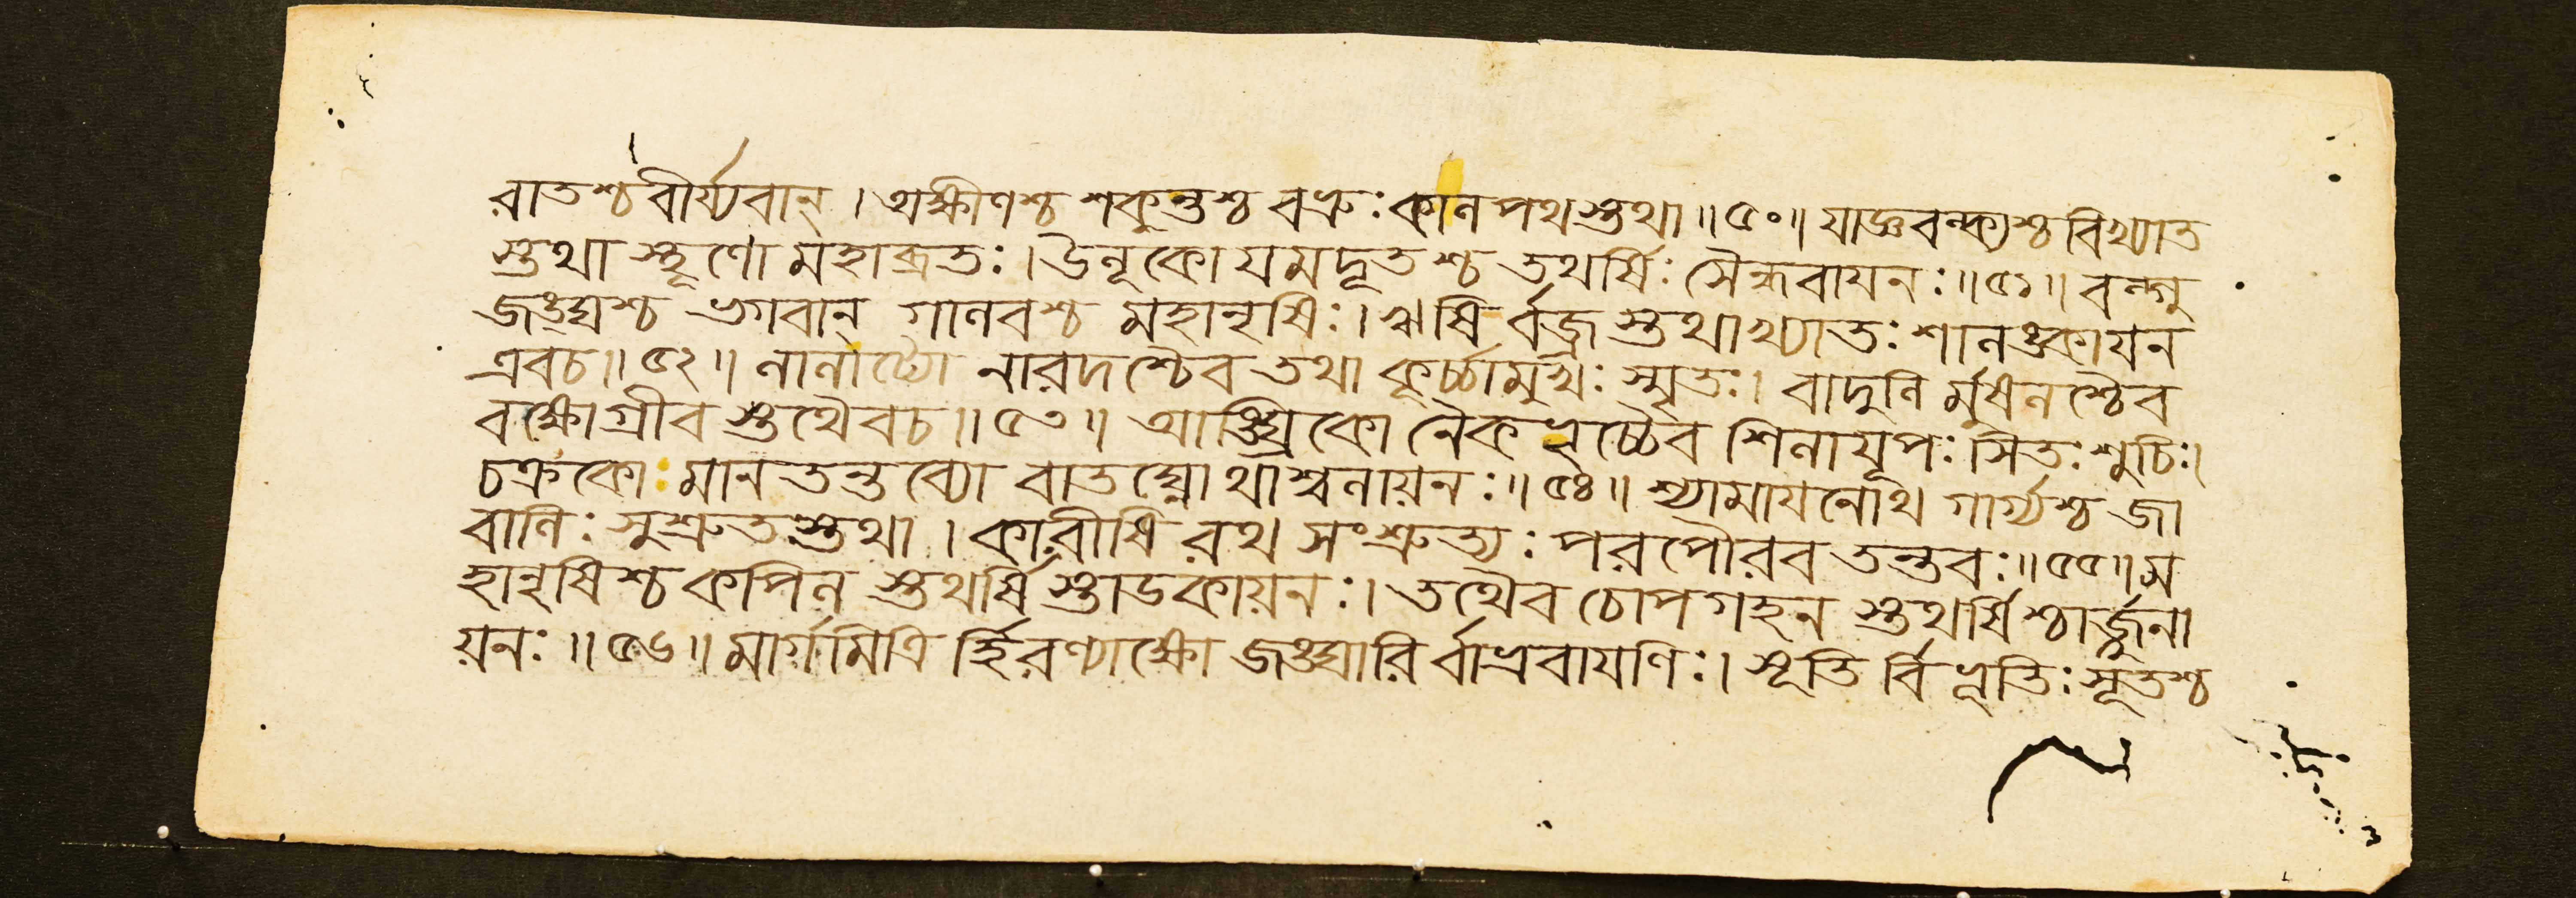 রাতশ্চ বীর্য্যবান্ । অক্ষীণশ্চ শকুন্তশ্চ বভ্রুঃ কালপথস্তথা ॥ ৫০ ॥ যাজ্ঞবল্ক্যশ্চ বিখ্যাত
স্তথা স্থূণো মহাব্রতঃ । উলূকো যমদূতশ্চ তথর্ষিঃ সৈন্ধবাযনঃ ॥ ৫১ ॥ বল্গু
জঙ্ঘশ্চ ভগবান্ গালবশ্চ মহানৃষিঃ । ঋষি র্বজ্র স্তথাখ্যাতঃ শালঙ্কাযন
এবচ ॥ ৫২ ॥ লালাট্যো নারদশ্চৈব তথা কূর্চ্চামুখঃ স্মৃতঃ । বাদুলি র্মুষলশ্চৈব
বক্ষোগ্রীব স্তথৈবচ ॥ ৫৩ ॥ আঙ্ঘ্রিকো নৈকভৃচ্চৈব শিলাযূপঃ সিতঃ শুচিঃ ।
চক্রকোঃ মালতন্তব্যো বাতঘ্নোথাশ্বলায়নঃ ॥ ৫৪ ॥ শ্যামাযনোথ গার্গ্যশ্চ জা
বালিঃ সুশ্রুতস্তথা । কারীষি রথ সংশ্রুত্যঃ পরপৌরব তন্তবঃ ॥ ৫৫ ॥ ম
হানৃষিশ্চ কপিল স্তথর্ষি স্তাডকায়নঃ । তথৈব চোপগহন স্তথর্ষিশ্চার্জ্জুনা
য়নঃ ॥ ৫৬ ॥ মার্গমিত্রি র্হিরণ্যাক্ষো জঙ্ঘারি র্বাভ্রবাযণিঃ । সূতি র্বিভূতিঃ সূতশ্চ